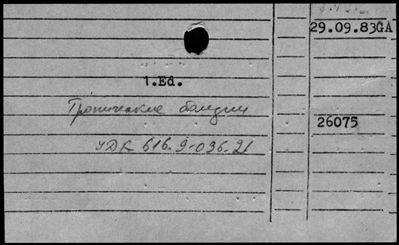 29.09.83GA
1.Ed.
Тропические болезни
26075
УДК 616.9-036.21